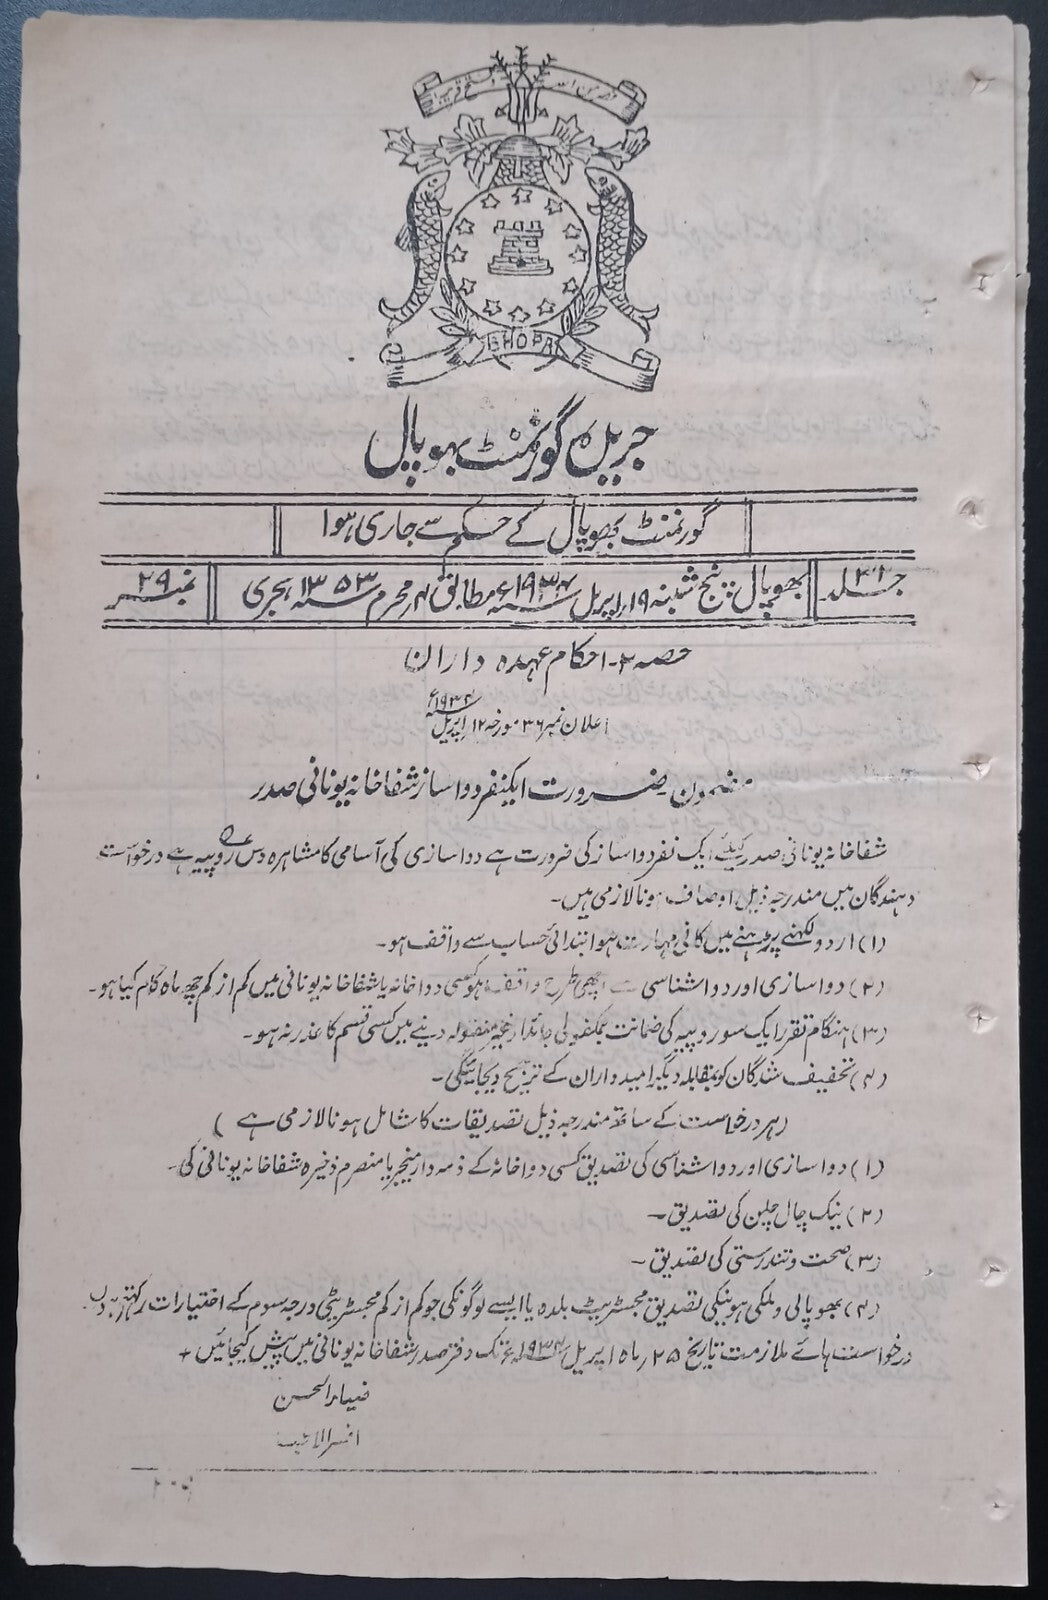 نصر من اللہ و فتح قریب
BHOPAL
جریدہ گورنمنٹ بھوپال
گورنمنٹ بھوپال کے حکم سے جاری ہوا
جلد ۴۱
بھوپال پنج شنبہ ۱۹ اپریل ۱۹۳۴ء مطابق ۴ محرم ۱۳۵۳ ہجری
نمبر ۲۹
حصہ ۲- احکام عہدہ داران
اعلان نمبر ۳۶ مورخہ ۱۲ اپریل ۱۹۳۴ء
مضمون - ضرورت ایک نفر دواساز شفاخانہ یونانی صدر
شفاخانہ یونانی صدر کیلئے ایک نفر دواساز کی ضرورت ہے دواسازی کی آسامی کا مشاہرہ دس روپیہ ہے درخواست
دہندگان میں مندرجہ ذیل اوصاف ہونا لازمی ہیں۔
(۱) اردو لکھنے پڑھنے میں کافی مہارت ہو ابتدائی حساب سے واقف ہو۔
(۲) دواسازی اور دواشناسی سے اچھی طرح واقف ہو کسی دواخانہ یا شفاخانہ یونانی میں کم از کم چھ ماہ کام کیا ہو۔
(۳) ہنگام تقرر ایک سو روپیہ کی ضمانت بمکفولی جائداد غیر منقولہ دینے میں کسی قسم کا عذر نہ ہو۔
(۴) تخفیف شدگان کو بمقابلہ دیگر امیدواران کے ترجیح دیجائیگی۔
(ہر درخواست کے ساتھ مندرجہ ذیل تصدیقات کا شامل ہونا لازمی ہے)
(۱) دواسازی اور دواشناسی کی تصدیق کسی دواخانہ کے ذمہ دار منیجر یا منصرم ذخیرہ شفاخانہ یونانی کی۔
(۲) نیک چال چلن کی تصدیق۔
(۳) صحت و تندرستی کی تصدیق۔
(۴) بھوپالی و ملکی ہونیکی تصدیق مجسٹریٹ بلدہ یا ایسے لوگونکی جو کم از کم مجسٹریٹی درجہ سوم کے اختیارات رکھتے ہوں۔
درخواست ہائے ملازمت تاریخ ۲۵ ماہ اپریل ۱۹۳۴ء تک دفتر صدر شفاخانہ یونانی میں پیش کیجائیں +
ضیاء الحسن
افسر الاطبا